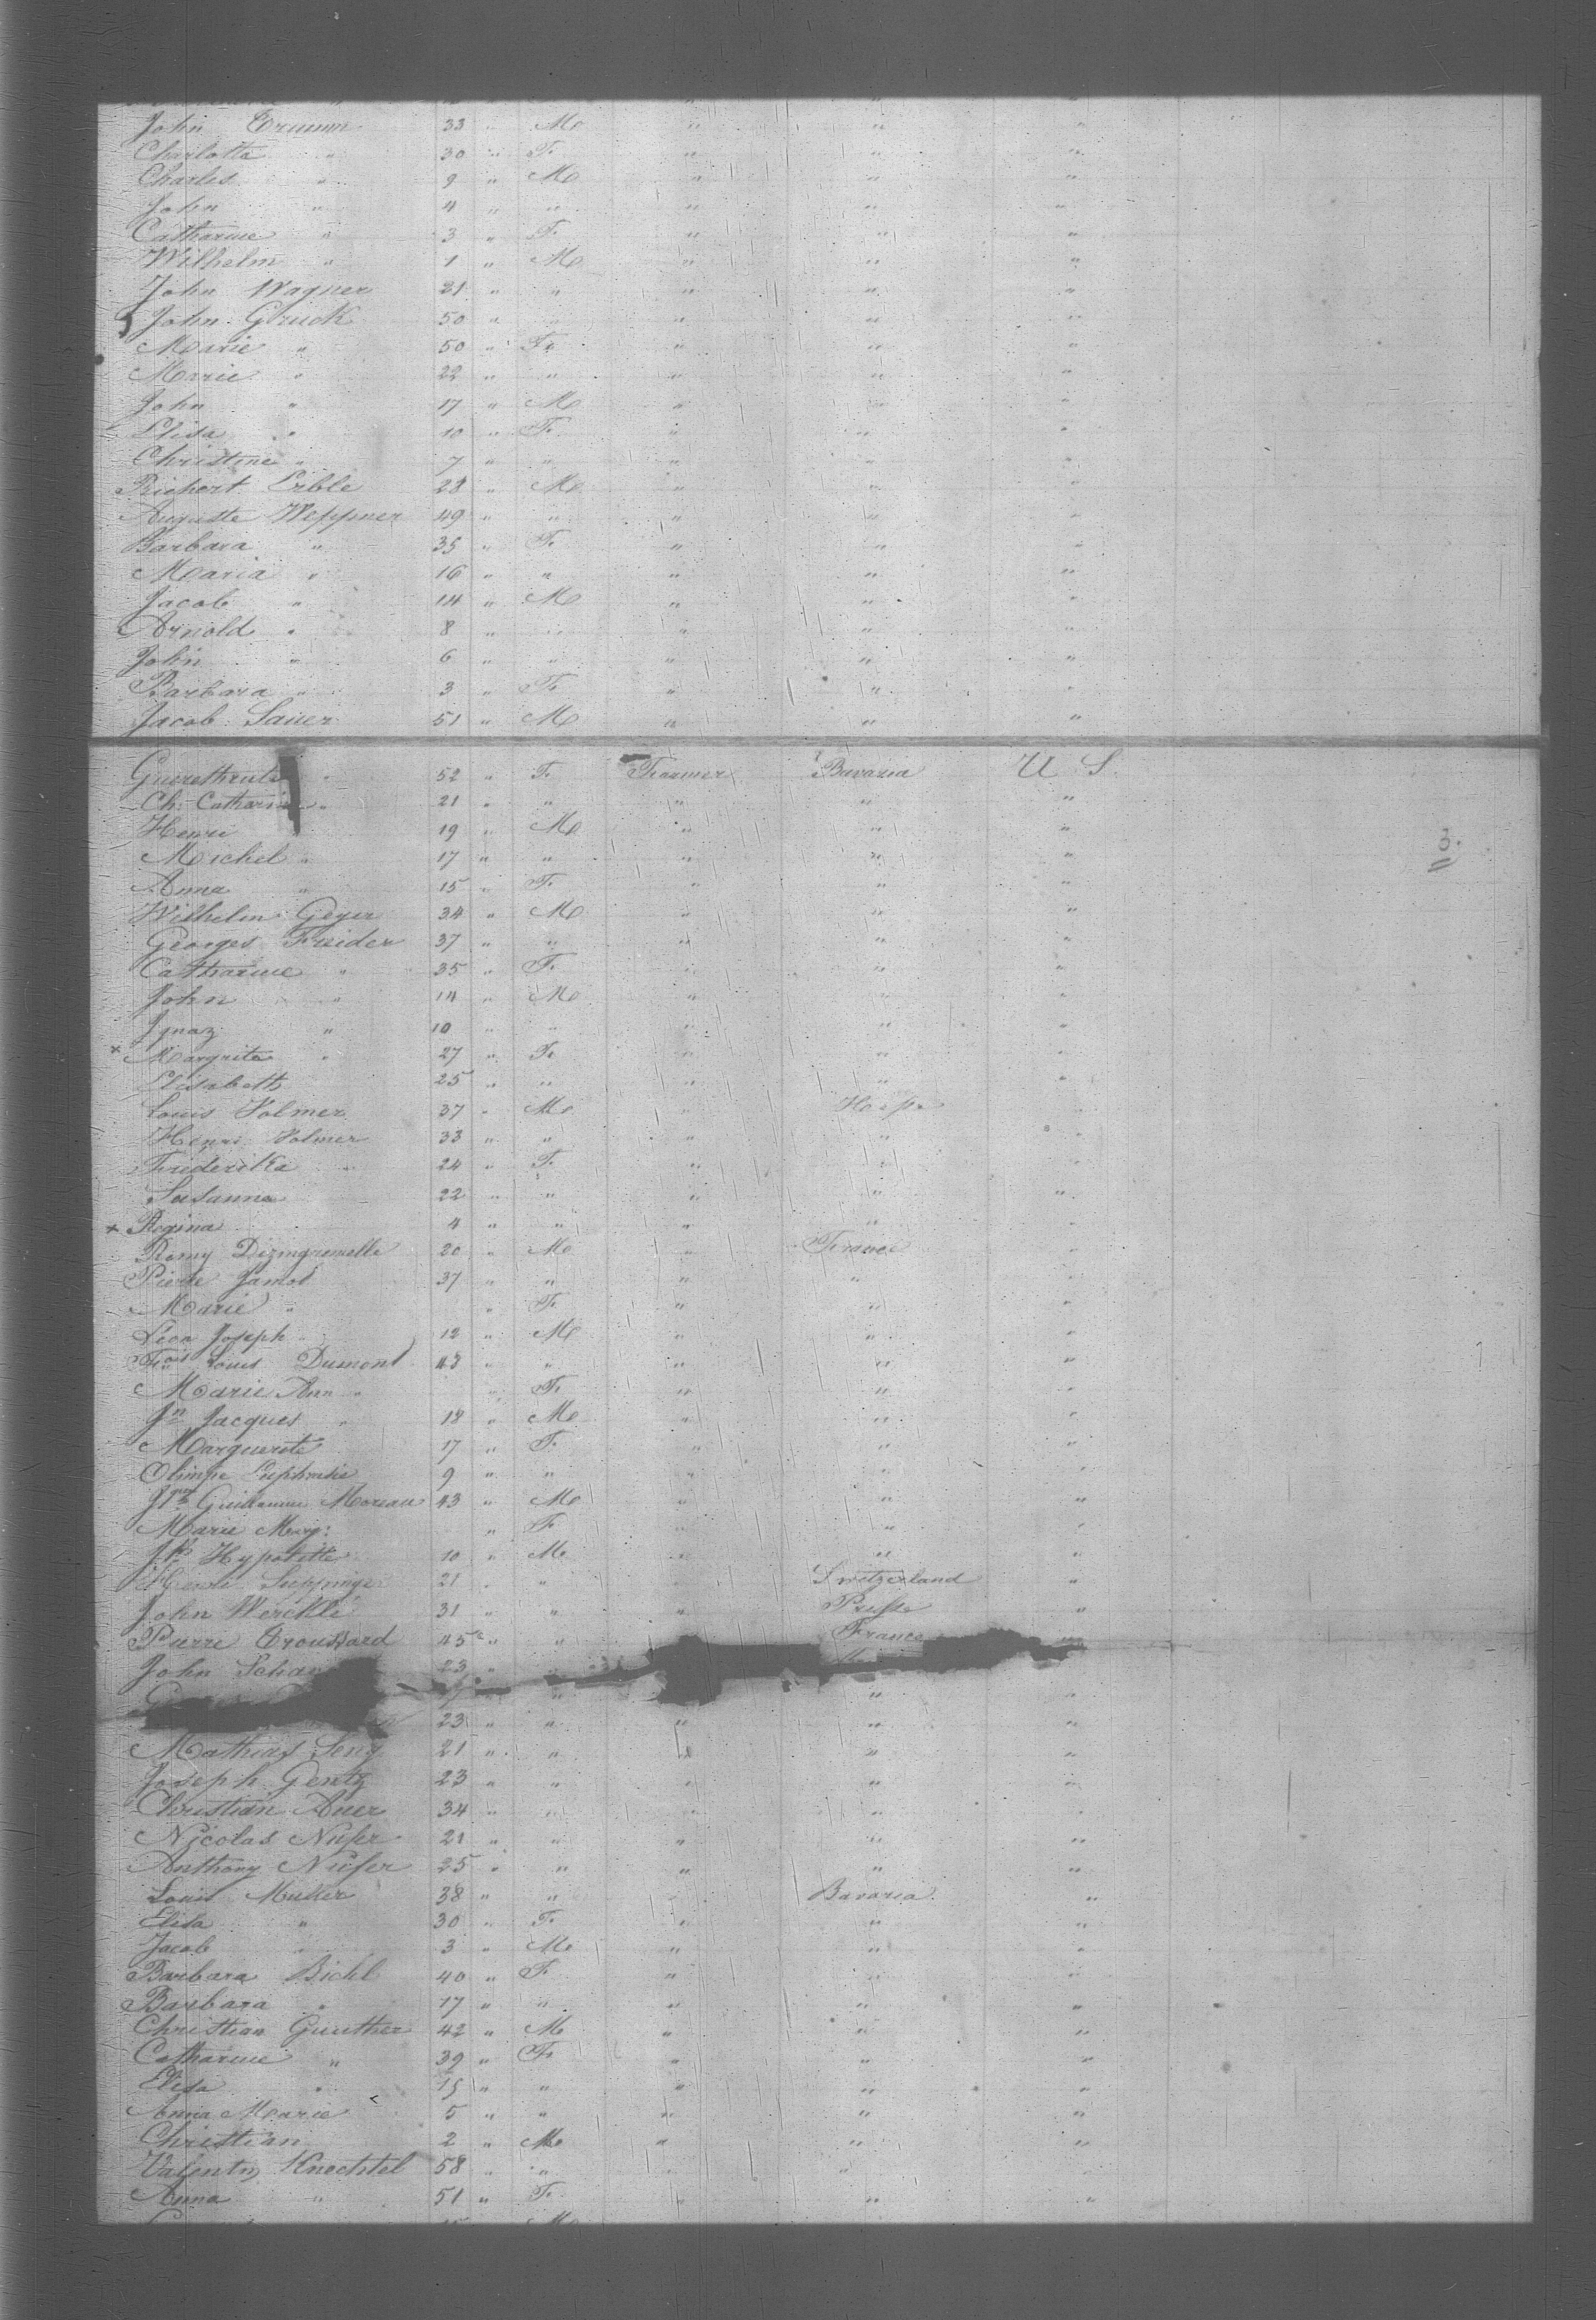 John Crumm 33 " M " " "
Charlotte " 30 " F " " "
Charles " 9 " M " " "
John " 4 " " " " "
Catharine " 3 " F " " "
Wilhelm " 1 " M " " "
John Wagner 21 " " " " "
John Gruck 50 " " " " "
Marie " 50 " F " " "
Marie " 22 " " " " "
John " 17 " M " " "
Elisa " 10 " F " " "
Christine " 7 " " " " "
Richert Erble 28 " M " " "
Auguste Weppner 49 " " " " "
Barbara " 35 " F " " "
Maria " 16 " " " " "
Jacob " 14 " M " " "
Arnold " 8 " " " " "
John " 6 " " " " "
Barbara " 3 " F " " "
Jacob Sauer 51 " M " " "
" 52 " F Farmer Bavaria U S
Ch. Catharin " 21 " " " " "
Henri 19 " M " " "
Michel " 17 " " " " "
3.
Anna " 15 " F " " "
Wilhelm Geyer 34 " M " " "
Georges Freider 37 " " " " "
Catharine " 35 " F " " "
John " 14 " M " " "
Ignaz " 10 " " " " "
x Margrita " 27 " F " " "
Elisabeth 25 " " " " "
Louis Volmer 37 " M " "
Henri Volmer 33 " " " " "
Friderika " 24 " F " " "
Susanna 22 " " " " "
x Regina 4 " " " " "
Remy 20 " M " France "
Pierre Jamot 37 " " " " "
Marie " " F " " "
Léon Joseph " 12 " M " " "
Fois Louis Dumont 43 " " " " "
Marie Ann " " F " " "
Jn Jacques " 18 " M " " "
Marguerite 17 " F " " "
Olimpe Euphrasie 9 " " " " "
Guillaume Moreau 43 " M " " "
Marie Marg: " F " " "
Jh 10 " M " " "
Henri 21 " " " Switzerland "
John Werckle 31 " " " Prusse "
Pierre Troussard 45 " " France "
John Schan 23 "
" " "
23 " " " " "
Mathias Seng 21 " " " " "
Joseph Gentz 23 " " " " "
Christian Auer 34 " " " " "
Nicolas Nufer 21 " " " " "
Anthony Nufer 25 " " " " "
Louis Muller 38 " " " Bavaria "
Elisa " 30 " F " " "
Jacob " 3 " M " " "
Barbara Bichl 40 " F " " "
Barbara " 17 " " " " "
Christian Gunther 42 " M " " "
Catharine " 39 " F " " "
Elisa " 15 " " " " "
Anna Marie 5 " " " " "
Christian 2 " M " " "
Valentin Knechtel 58 " " " " "
Anna " 51 " F " " "